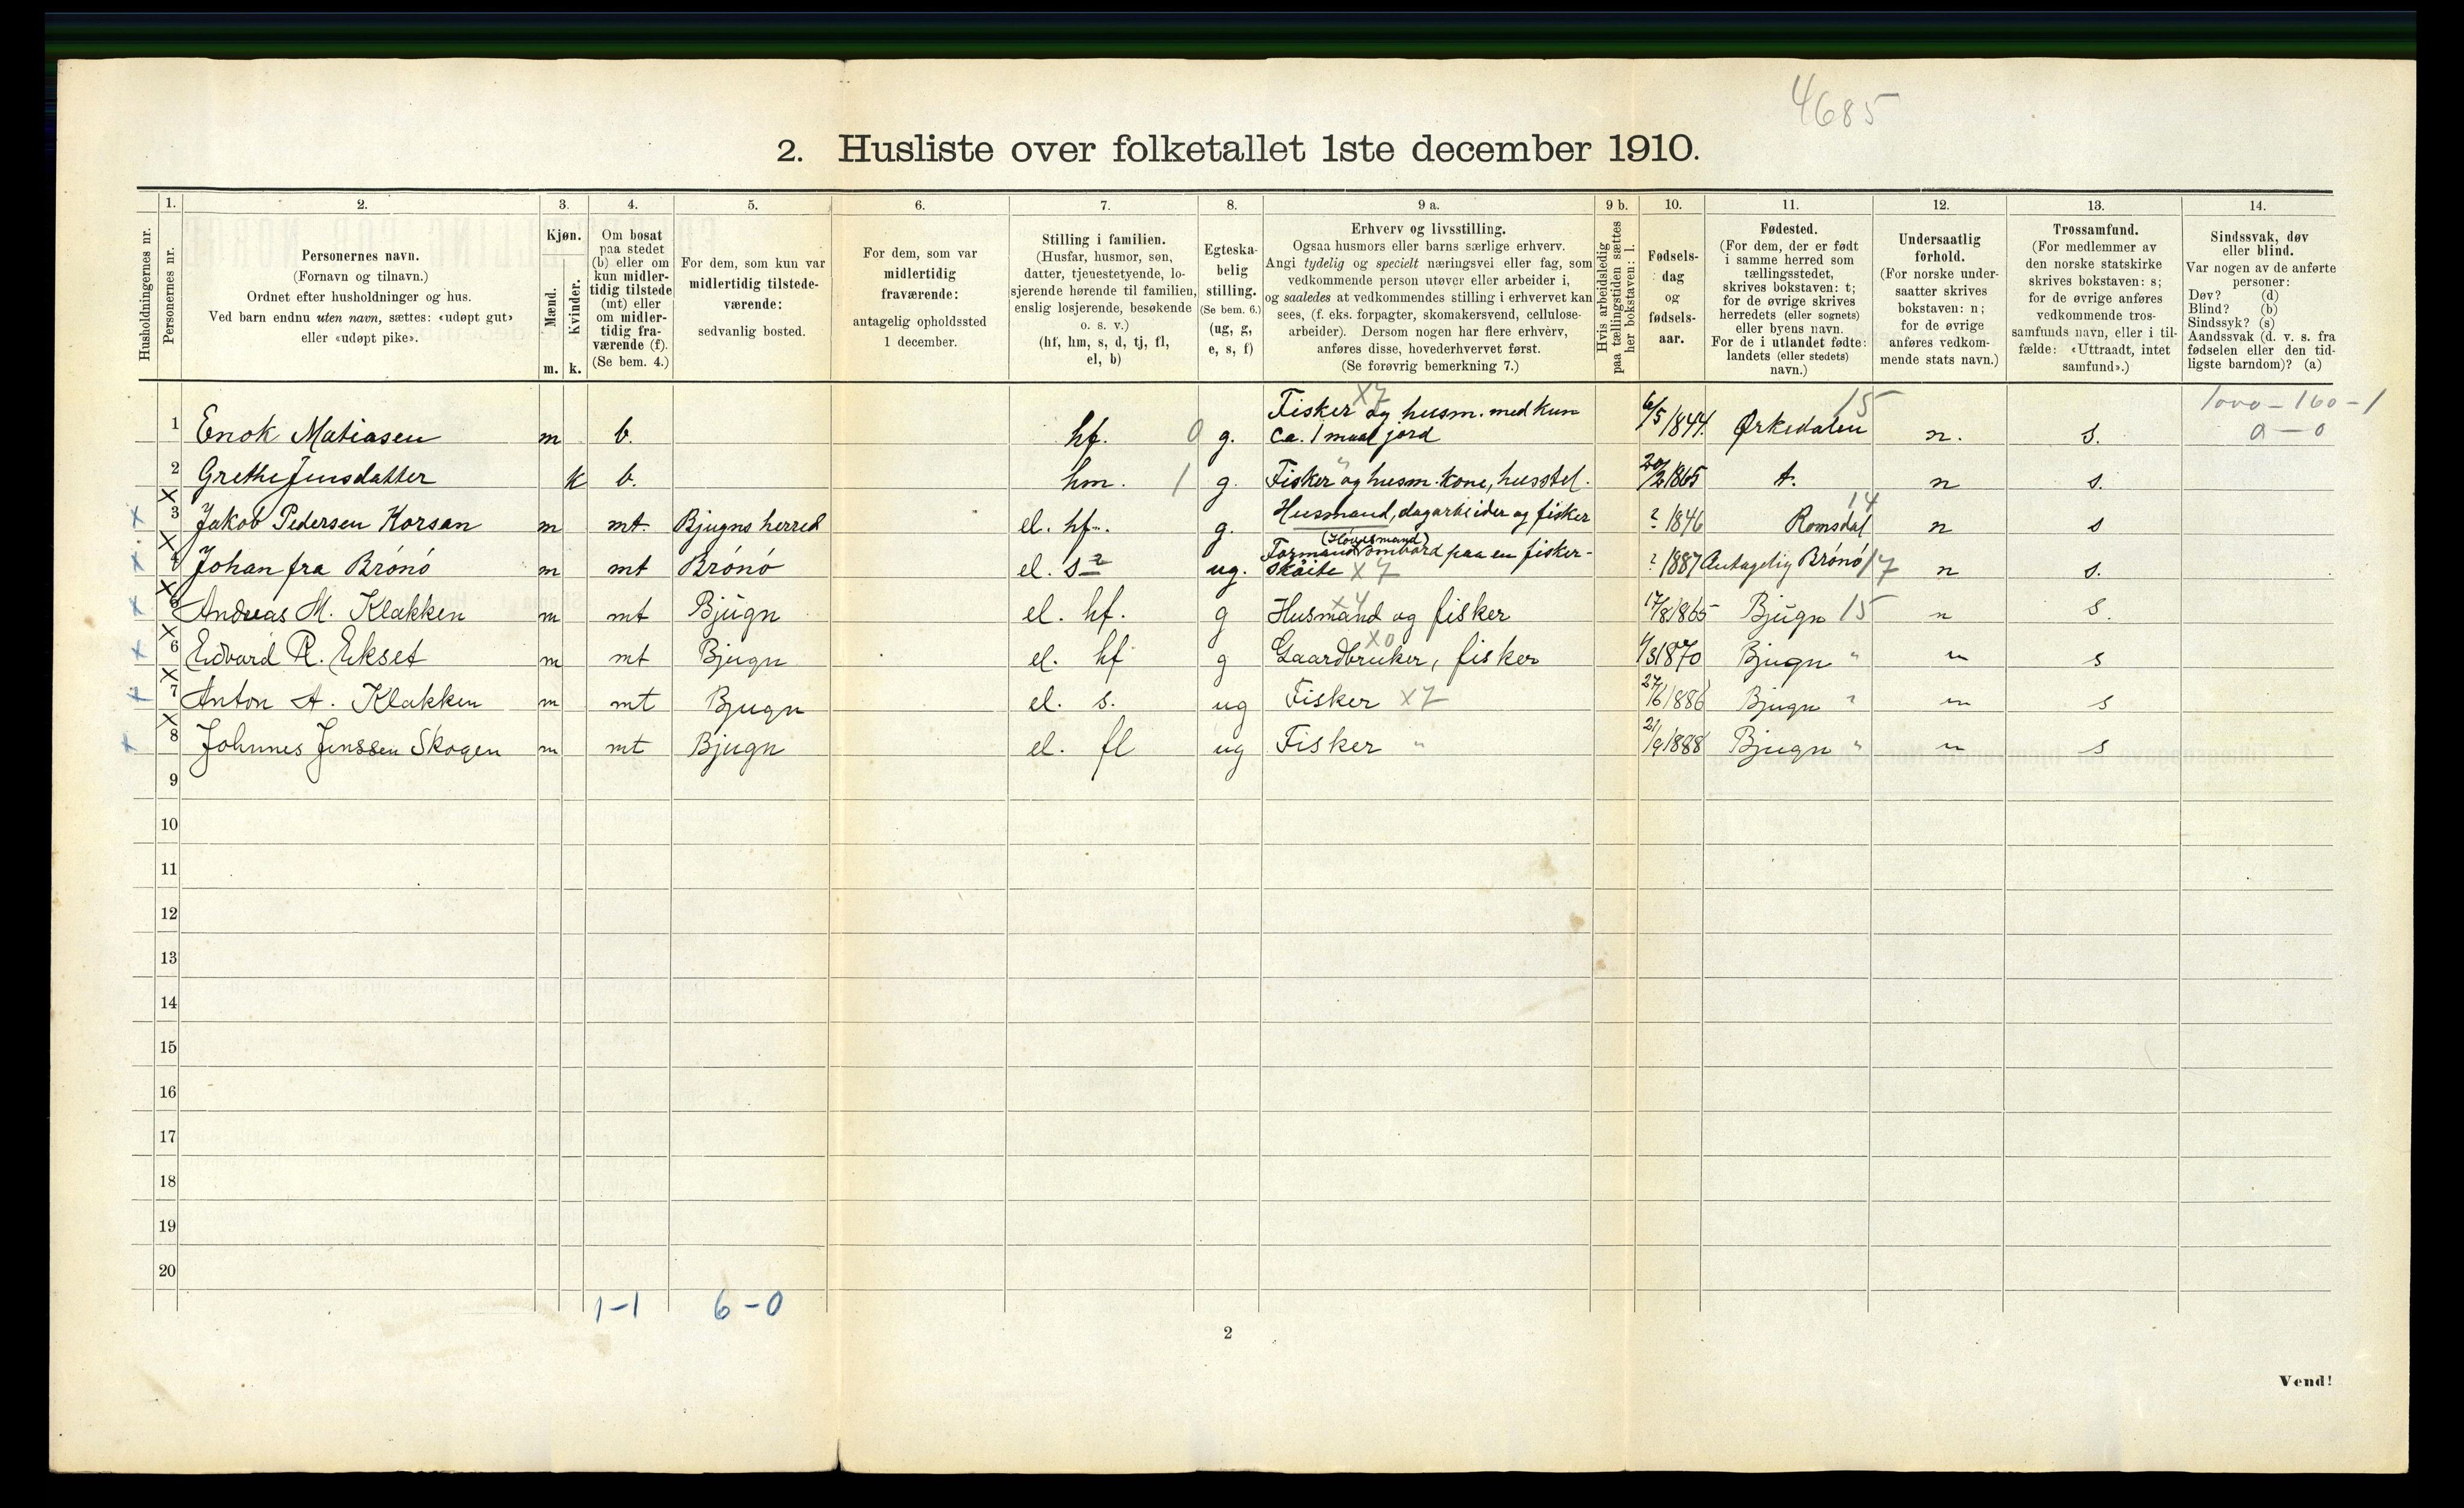 4685
2. Husliste over folketallet 1ste december 1910.
Husholdningernes nr.
1. Personernes nr.
2. Personernes navn.
(Fornavn og tilnavn.)
Ordnet efter husholdninger og hus.
Ved barn endnu uten navn, sættes: «udøpt gut»
eller «udøpt pike».
3. Kjøn.
Mænd. m.
Kvinder. k.
4. Om bosat
paa stedet
(b) eller om
kun midler-
tidig tilstede
(mt) eller
om midler-
tidig fra-
værende (f).
(Se bem. 4.)
5. For dem, som kun var
midlertidig tilstede-
værende:
sedvanlig bosted.
6. For dem, som var
midlertidig
fraværende:
antagelig opholdssted
1 december.
7. Stilling i familien.
(Husfar, husmor, søn,
datter, tjenestetyende, lo-
sjerende hørende til familien,
enslig losjerende, besøkende
o. s. v.)
(hf, hm, s, d, tj, fl,
el, b)
8. Egteska-
belig
stilling.
(Se bem. 6.)
(ug, g,
e, s, f)
9 a. Erhverv og livsstilling.
Ogsaa husmors eller barns særlige erhverv.
Angi tydelig og specielt næringsvei eller fag, som
vedkommende person utøver eller arbeider i,
og saaledes at vedkommendes stilling i erhvervet kan
sees, (f. eks. forpagter, skomakersvend, cellulose-
arbeider). Dersom nogen har flere erhverv,
anføres disse, hovederhvervet først.
(Se forøvrig bemerkning 7.)
9 b. Hvis arbeidsledig
paa tællingstiden sættes
her bokstaven: l.
10. Fødsels-
dag
og
fødsels-
aar.
11. Fødested.
(For dem, der er født
i samme herred som
tællingsstedet,
skrives bokstaven: t;
for de øvrige skrives
herredets (eller sognets)
eller byens navn.
For de i utlandet fødte:
landets (eller stedets)
navn.)
12. Undersaatlig
forhold.
(For norske under-
saatter skrives
bokstaven: n;
for de øvrige
anføres vedkom-
mende stats navn.)
13. Trossamfund.
(For medlemmer av
den norske statskirke
skrives bokstaven: s;
for de øvrige anføres
vedkommende tros-
samfunds navn, eller i til-
fælde: «Uttraadt, intet
samfund».)
14. Sindssvak, døv
eller blind.
Var nogen av de anførte
personer:
Døv? (d)
Blind? (b)
Sindssyk? (s)
Aandssvak (d. v. s. fra
fødselen eller den tid-
ligste barndom)? (a)
1 Enok Matiasen m b. hf. 0 g. Fisker og husm. med kun X7
ca. 1 maal jord 6/5 1844. Ørkedalen 15 n. s. 1000-160-1
0-0
2 Grethe Jensdatter k b. hm. 1 g. Fisker og husm. kone, husstel. " 20/2 1865 t. n s.
x 3 Jakob Pedersen Korsan m mt Bjugns herred el. hf. g. Husmand, dagarbeider og fisker ? 1846 Romsdal 14 n s
x 4 Johan fra Brönö m mt Brönö el. s ? ug. Formand (Høvedsmand) ombord paa en fisker-
sköite X7 ? 1887 Antagelig Brönö 17 n s.
x 5 Andreas M. Klakken m mt Bjugn el. hf. g Husmand og fisker X4 17/8 1865 Bjugn 15 n s.
x 6 Edvard R. Ekset m mt Bjugn el. hf g Gaardbruker, fisker X0 1/3 1870 Bjugn " n s
x 7 Anton A. Klakken m mt Bjugn el. s. ug Fisker X7 27/6 1886 Bjugn " n s
x 8 Johnnes Jenssen Skogen m mt Bjugn el. fl ug Fisker " 21/9 1888 Bjugn " n s
9
10
11
12
13
14
15
16
17
18
19
20
1-1 6-0
2
Vend!